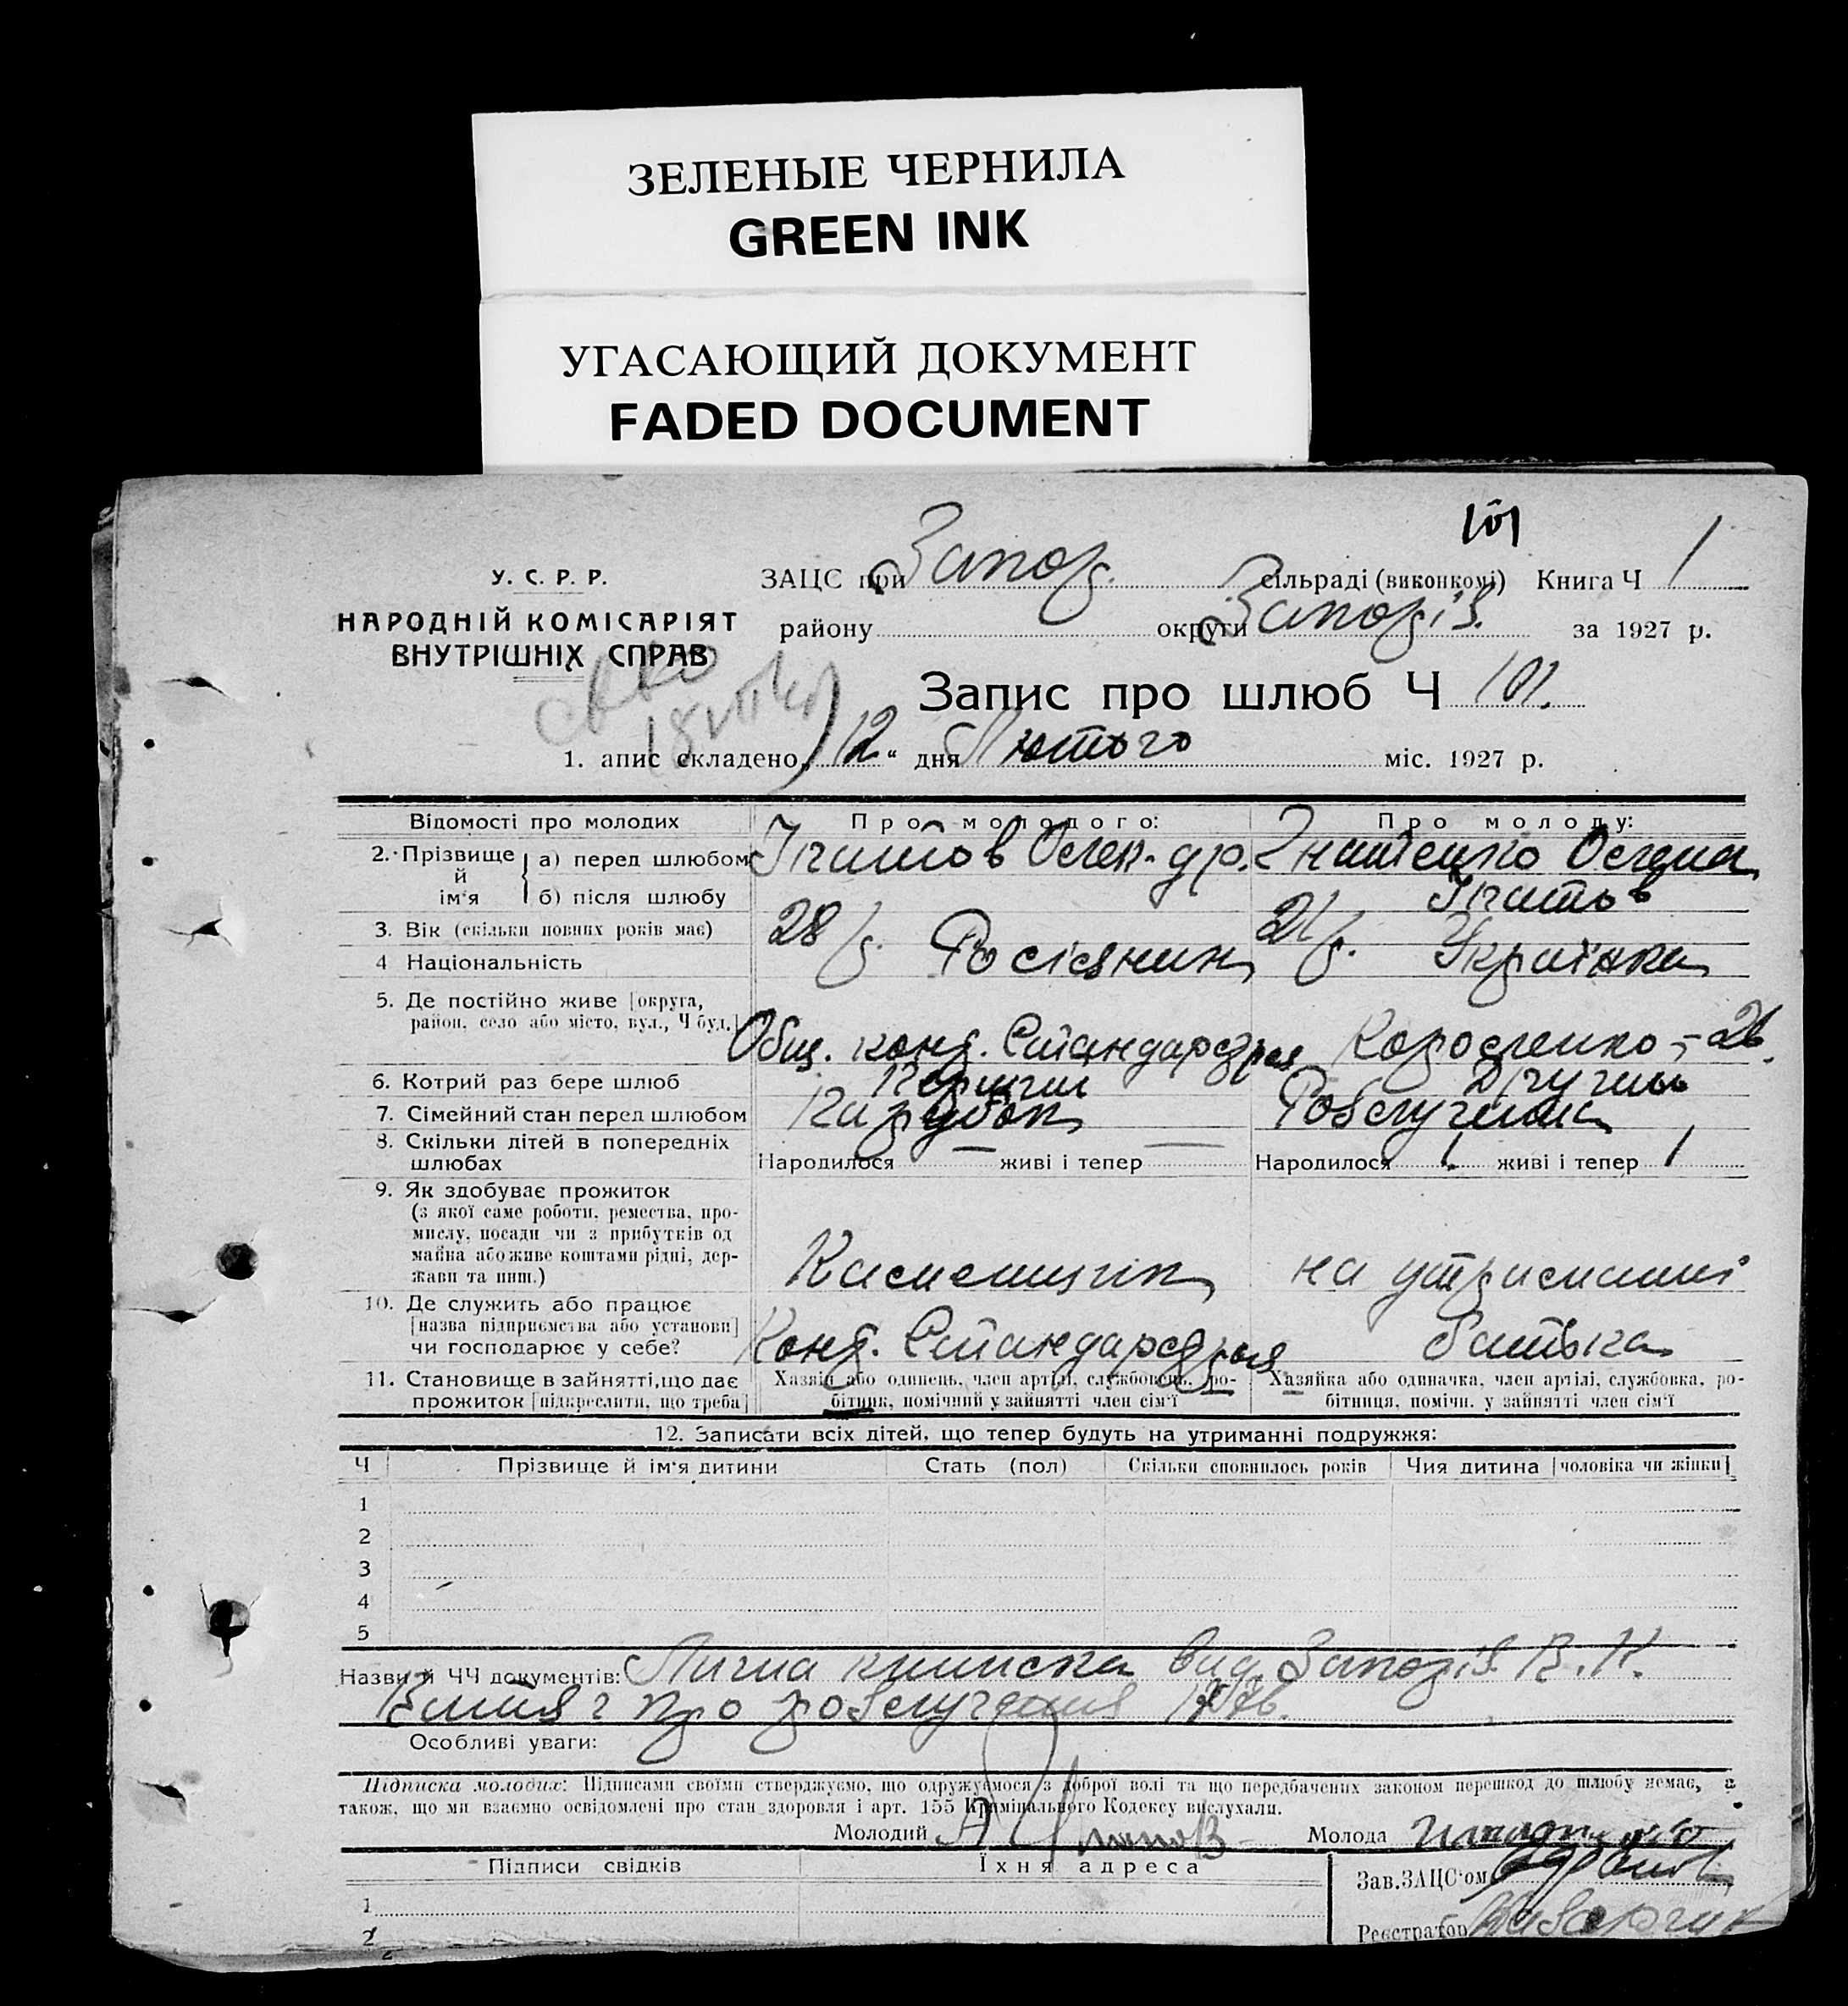 ЗЕЛЕНЫЕ ЧЕРНИЛА
GREEN INK
УГАСАЮЩИЙ ДОКУМЕНТ
FADED DOCUMENT
101
У. С. Р. Р.
НАРОДНІЙ КОМІСАРІЯТ
ВНУТРІШНІХ СПРАВ
ЗАЦС при Запор. сільраді (виконкомі) Книга Ч 1
району округи Запоріз. за 1927 р.
Запис про шлюб Ч 101.
1. апис складено „12“ дня Лютого міс. 1927 р.
Відомості про молодих Про молодого: Про молоду:
2. Прізвище й ім'я а) перед шлюбом Олек-др. Олена
б) після шлюбу
3. Вік (скільки повних років має) 28 р. 21 р.
4 Національність Росіянин Українка
5. Де постійно живе [округа,
район, село або місто, вул., Ч буд.] Общ. конд. Стандарт Короленко - 26.
6. Котрий раз бере шлюб Перший Другий
7. Сімейний стан перед шлюбом Парубок Розлучена
8. Скільки дітей в попередніх
шлюбах Народилося — живі і тепер — Народилося 1 живі і тепер 1
9. Як здобуває прожиток
(з якої саме роботи, ремества, про-
мислу, посади чи з прибутків од
майна або живе коштами рідні, дер-
жави та инш.) Каменщик на утриманні
10. Де служить або працює
[назва підприємства або установи]
чи господарює у себе? Конд. батька
11. Становище в зайнятті, що дає
прожиток [підкреслити, що треба]
Хазяїн або одинець, член артілі, службовець, ро-
бітник, помічний у зайнятті член сім'ї
Хазяйка або одиначка, член артілі, службовка, ро-
бітниця, помічн. у зайнятті член сім'ї
12. Записати всіх дітей, що тепер будуть на утриманні подружжя:
Ч Прізвище й ім'я дитини Стать (пол) Скільки сповнилось років Чия дитина [чоловіка чи жінки]
1
2
3
4
5
Назви й ЧЧ документів: Лична книжка вид. Запоріз.
Витяг про розлучення
Особливі уваги:
Підписка молодих: Підписами своїми стверджуємо, що одружуємося з доброї волі та що передбачених законом перешкод до шлюбу немає, а
також, що ми взаємно освідомлені про стан здоровля і арт. 155 Кримінального Кодексу вислухали.
Молодий Молода
Підписи свідків Їхня адреса
Зав. ЗАЦС'ом
1
Реєстратор
2